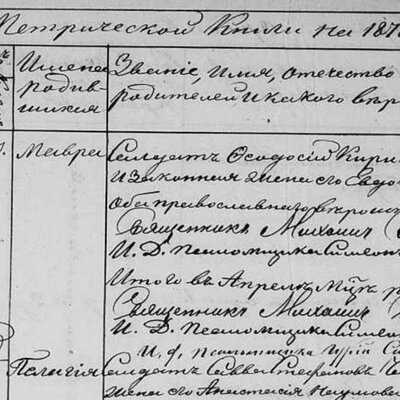 Метрической Книги на 187
Имена родив- шихся
Званіе, имя, отечество
родителей и какого вѣр
Мавра
Солдатъ Ѳеодосій Кири
и законная жена его Евдо
оба православнаго вѣроис
Священникъ Михаилъ
И. Д. Псаломщика Симеонъ
Итого въ Апрелѣ М-цѣ р
Священникъ Михаилъ
И. Д. Псаломщика Симео
И. д. Псаломщика
Пелагія
Солдатъ Савва Стефановъ
жена его Анастасія Наумова